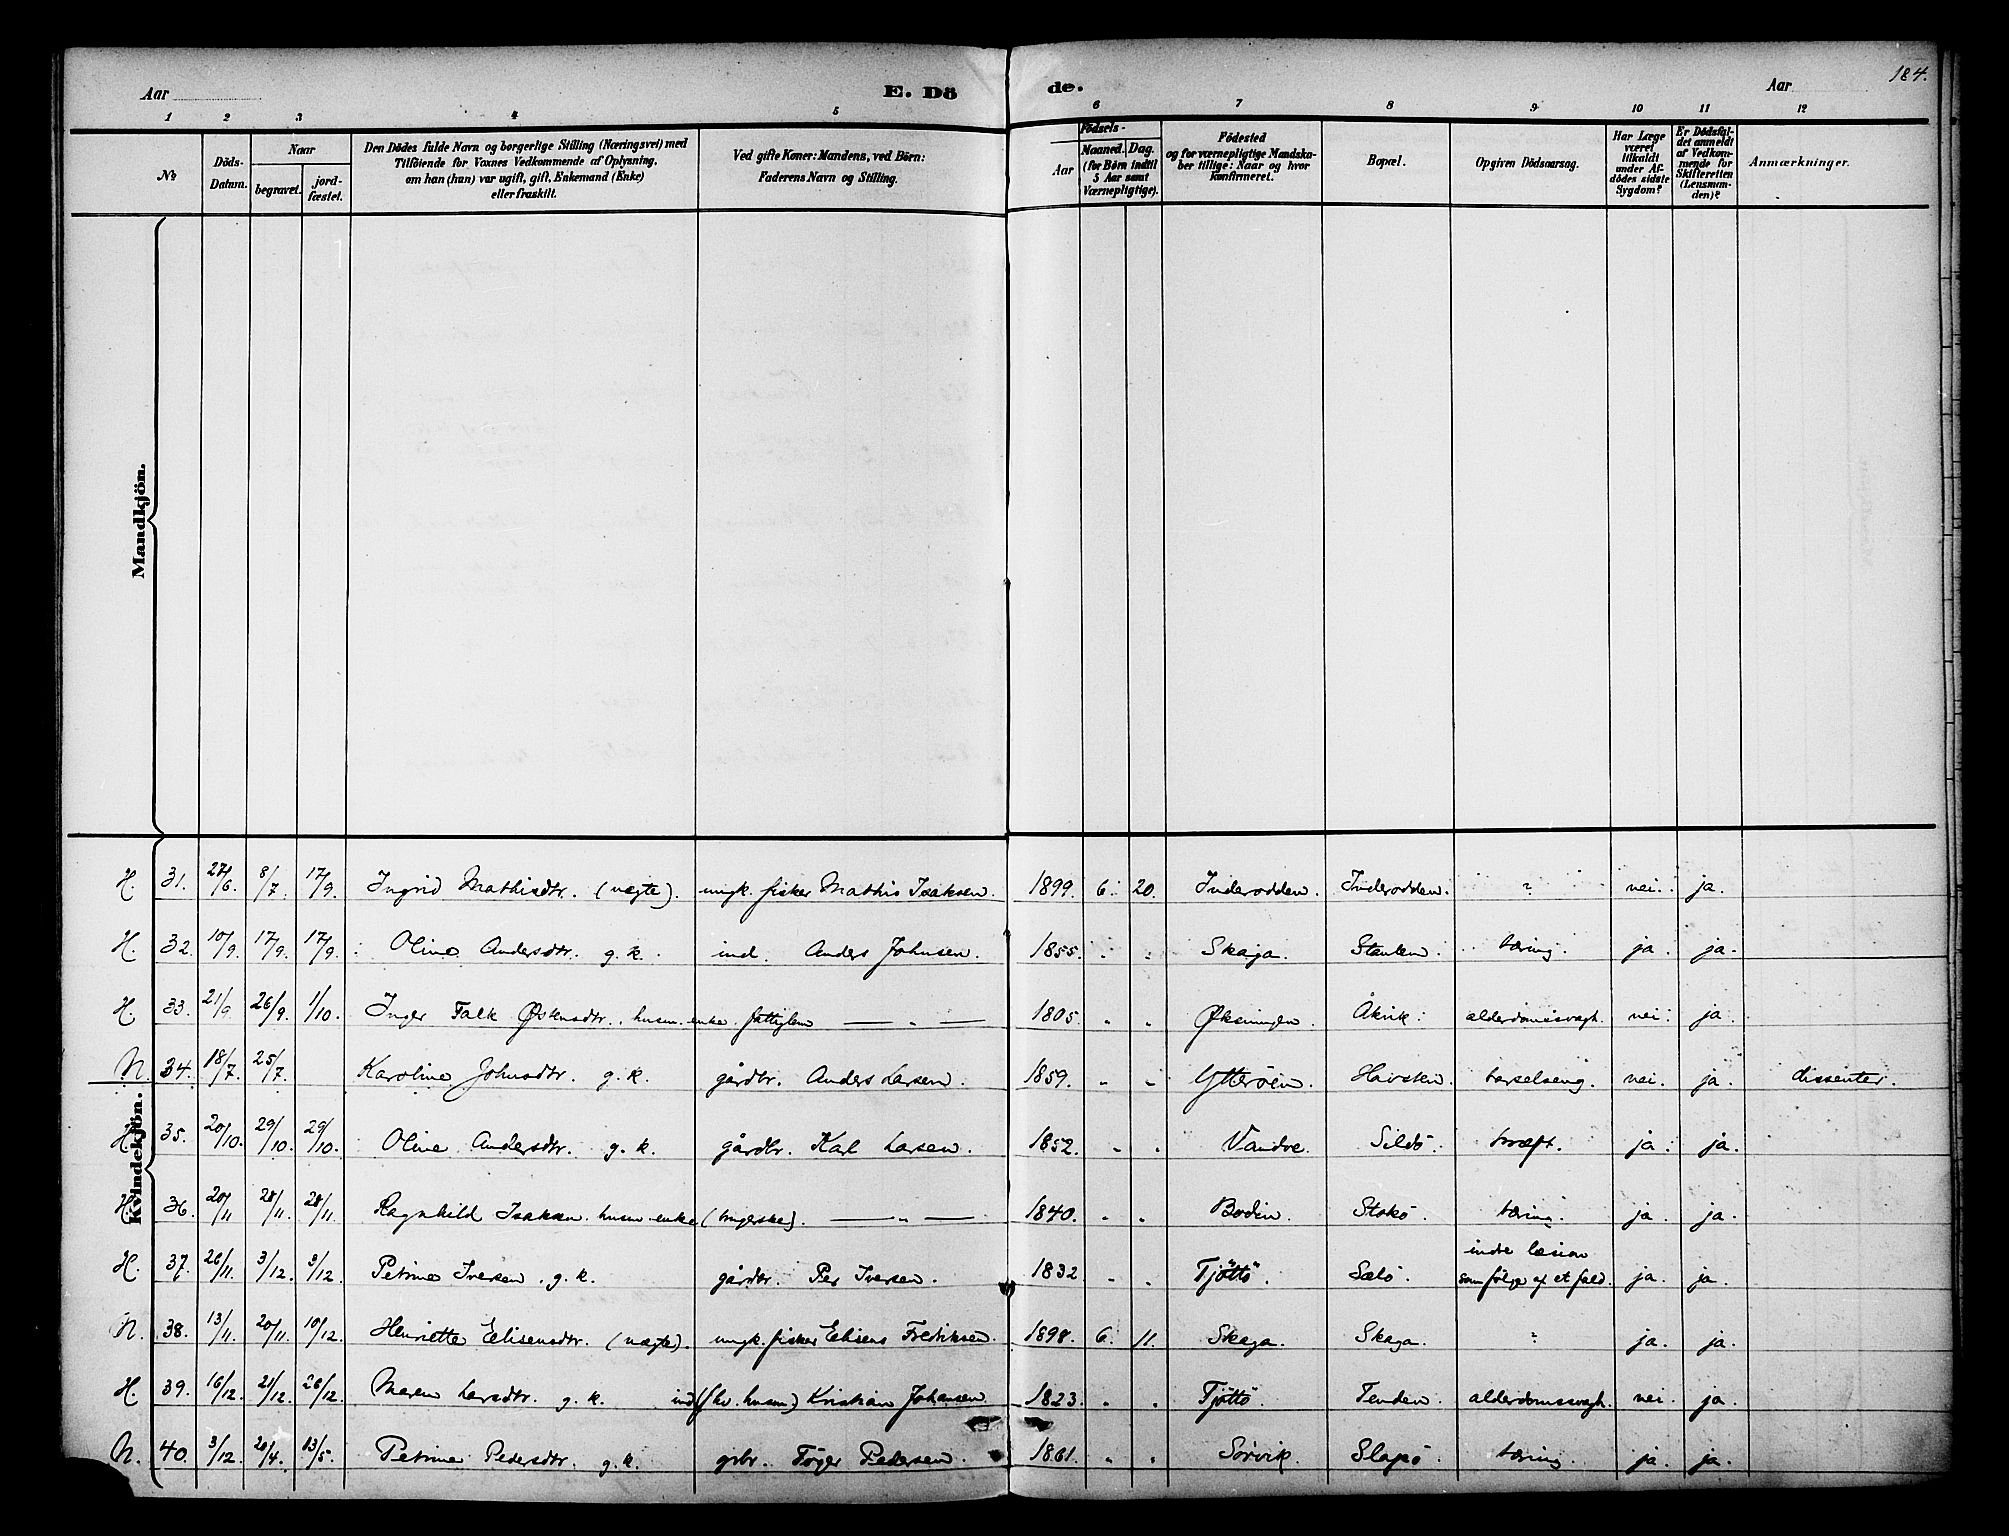 184.
Aar E. Dö de. Aar
1 2 3 4 5 6 7 8 9 10 11 12
№
Döds-Datum.
Naar
begravet. jord-fæstet.
Den Dödes fulde Navn og borgerlige Stilling (Næringsvei) med
Tilföiende for Voxnes Vedkommende af Oplysning,
om han (hun) var ugift, gift, Enkemand (Enke)
eller fraskilt.
Ved gifte Koner: Mandens, ved Börn:
Faderens Navn og Stilling.
Födsels-
Aar
Maaned. Dag.
(for Börn indtil
5 Aar samt
Værnepligtige).
Födested
og for værnepligtige Mandska-
ber tillige: Naar og hvor
konfirmeret.
Bopæl.
Opgiven Dödsaarsag.
Har Læge
været
tilkaldt
under Af-
dödes sidste
Sygdom?
Er Dödsfal-
det anmeldt
af Vedkom-
mende for
Skifteretten
(Lensman-
den)?
Anmærkninger.
Mandkjön.
Kvindekjön.
H. 31. 27/6. 8/7. 17/9. Ingrid Mathisdtr. (uægte). ungk. fisker Mathis Isaksen. 1899. 6. 20. Inderodden. Inderodden. " nei. ja.
H. 32. 10/9. 17/9. 17/9. Oline Andersdtr. g. k. ind. Anders Johnsen. 1855. " " Skaga. Staulen. tæring. ja. ja.
H. 33. 21/9. 26/9. 1/10. Inger Falk Østensdtr., husm. enke fattiglem — " — 1805. " " Øksningen. Åkvik. alderdomssvagh. nei. ja.
N. 34. 18/7. 25/7. Karoline Johnsdtr. g. k. gårdbr. Anders Larsen. 1859. " " Ytterøen. Havsten. barselseng. nei. ja. dissenter.
H. 35. 20/10. 29/10. 29/10. Oline Andersdtr. g. k. gårdbr. Karl Larsen. 1852. " " Vandve. Sildö. kræft. ja. ja.
H. 36. 20/11. 28/11. 28/11. Ragnhild Isaksen. husm. enke (brugerske). — " — 1840. " " Bodin. Stokö. tæring. ja. ja.
H. 37. 26/11. 3/12. 3/12. Petrine Iversen. g. k. gårdbr. Per Iversen. 1832 " " Tjöttö. Sælö. indre læsion
som følge af et fald. ja. ja.
N. 38. 13/11. 20/11. 10/12. Henriette Edisensdtr. (uægte). ungk. fisker Edisens Fredriksen. 1898. 6. 11. Skaga. Skaga. " ja. ja.
H. 39. 16/12. 21/12. 26/12. Maren Larsdtr. g. k. ind (fhv. husm) Kristian Johansen 1823. " " Tjöttö. Tenden. alderdomssvagh. nei. ja.
N. 40. 3/12. 20/4. 13/5. Petrine Pedersdtr. g. k. grbr. Töger Pedersen. 1861. " " Sörvik. Slapö. tæring. ja. ja.